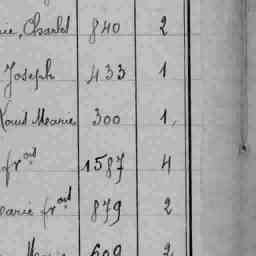 Charles 840 2
Joseph 433 1
Louis Marie 300 1
frois 1587 4
Marie frois 879 2
Marie 609 2